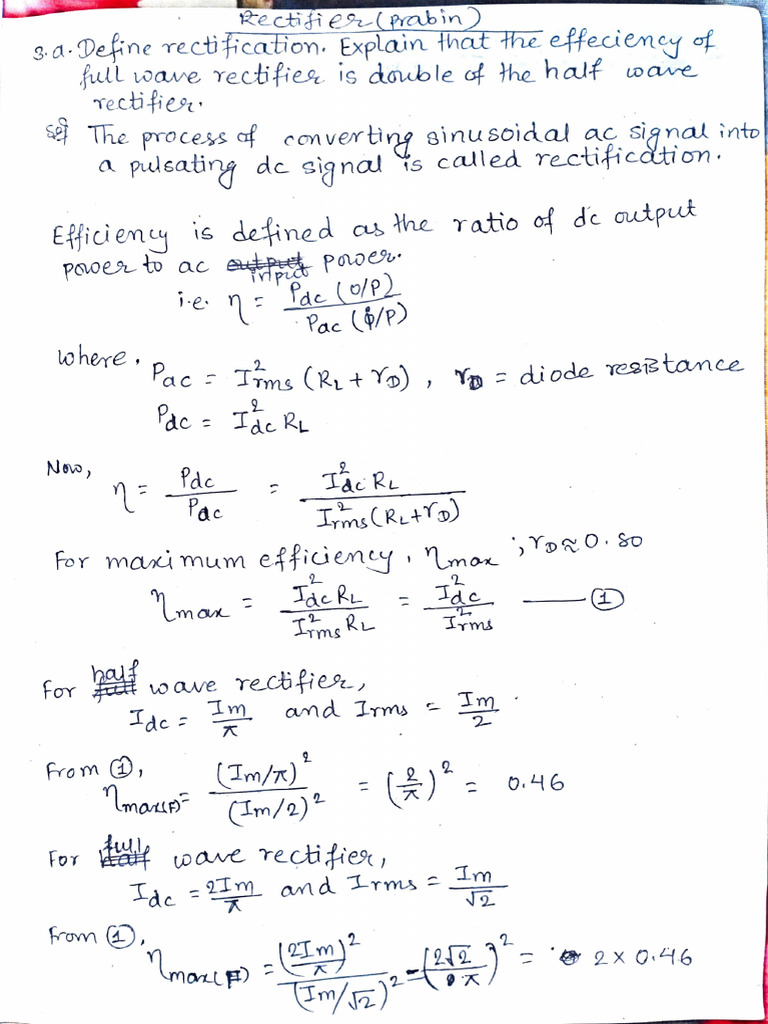 Rectifier (Prabin)
3.a. Define rectification. Explain that the effeciency of
full wave rectifier is double of the half wave
rectifier.
The process of converting sinusoidal ac signal into
a pulsating dc signal is called rectification.
Efficiency is defined as the ratio of dc output
power to ac input power.
i.e. η = Pdc (O/P) / Pac (i/P)
where, Pac = I²rms (RL + rD), rD = diode resistance
Pdc = I²dc RL
Now, η = Pdc / Pac = I²dc RL / I²rms (RL + rD)
For maximum efficiency, ηmax ; rD ≈ 0. so
ηmax = I²dc RL / I²rms RL = I²dc / I²rms —— ①
For half wave rectifier,
Idc = Im/π and Irms = Im/2
From ①,
ηmax(F) = (Im/π)² / (Im/2)² = (2/π)² = 0.46
For full wave rectifier,
Idc = 2Im/π and Irms = Im/√2
From ①,
ηmax(F) = (2Im/π)² / (Im/√2)² = (2√2/π)² = 2 × 0.46